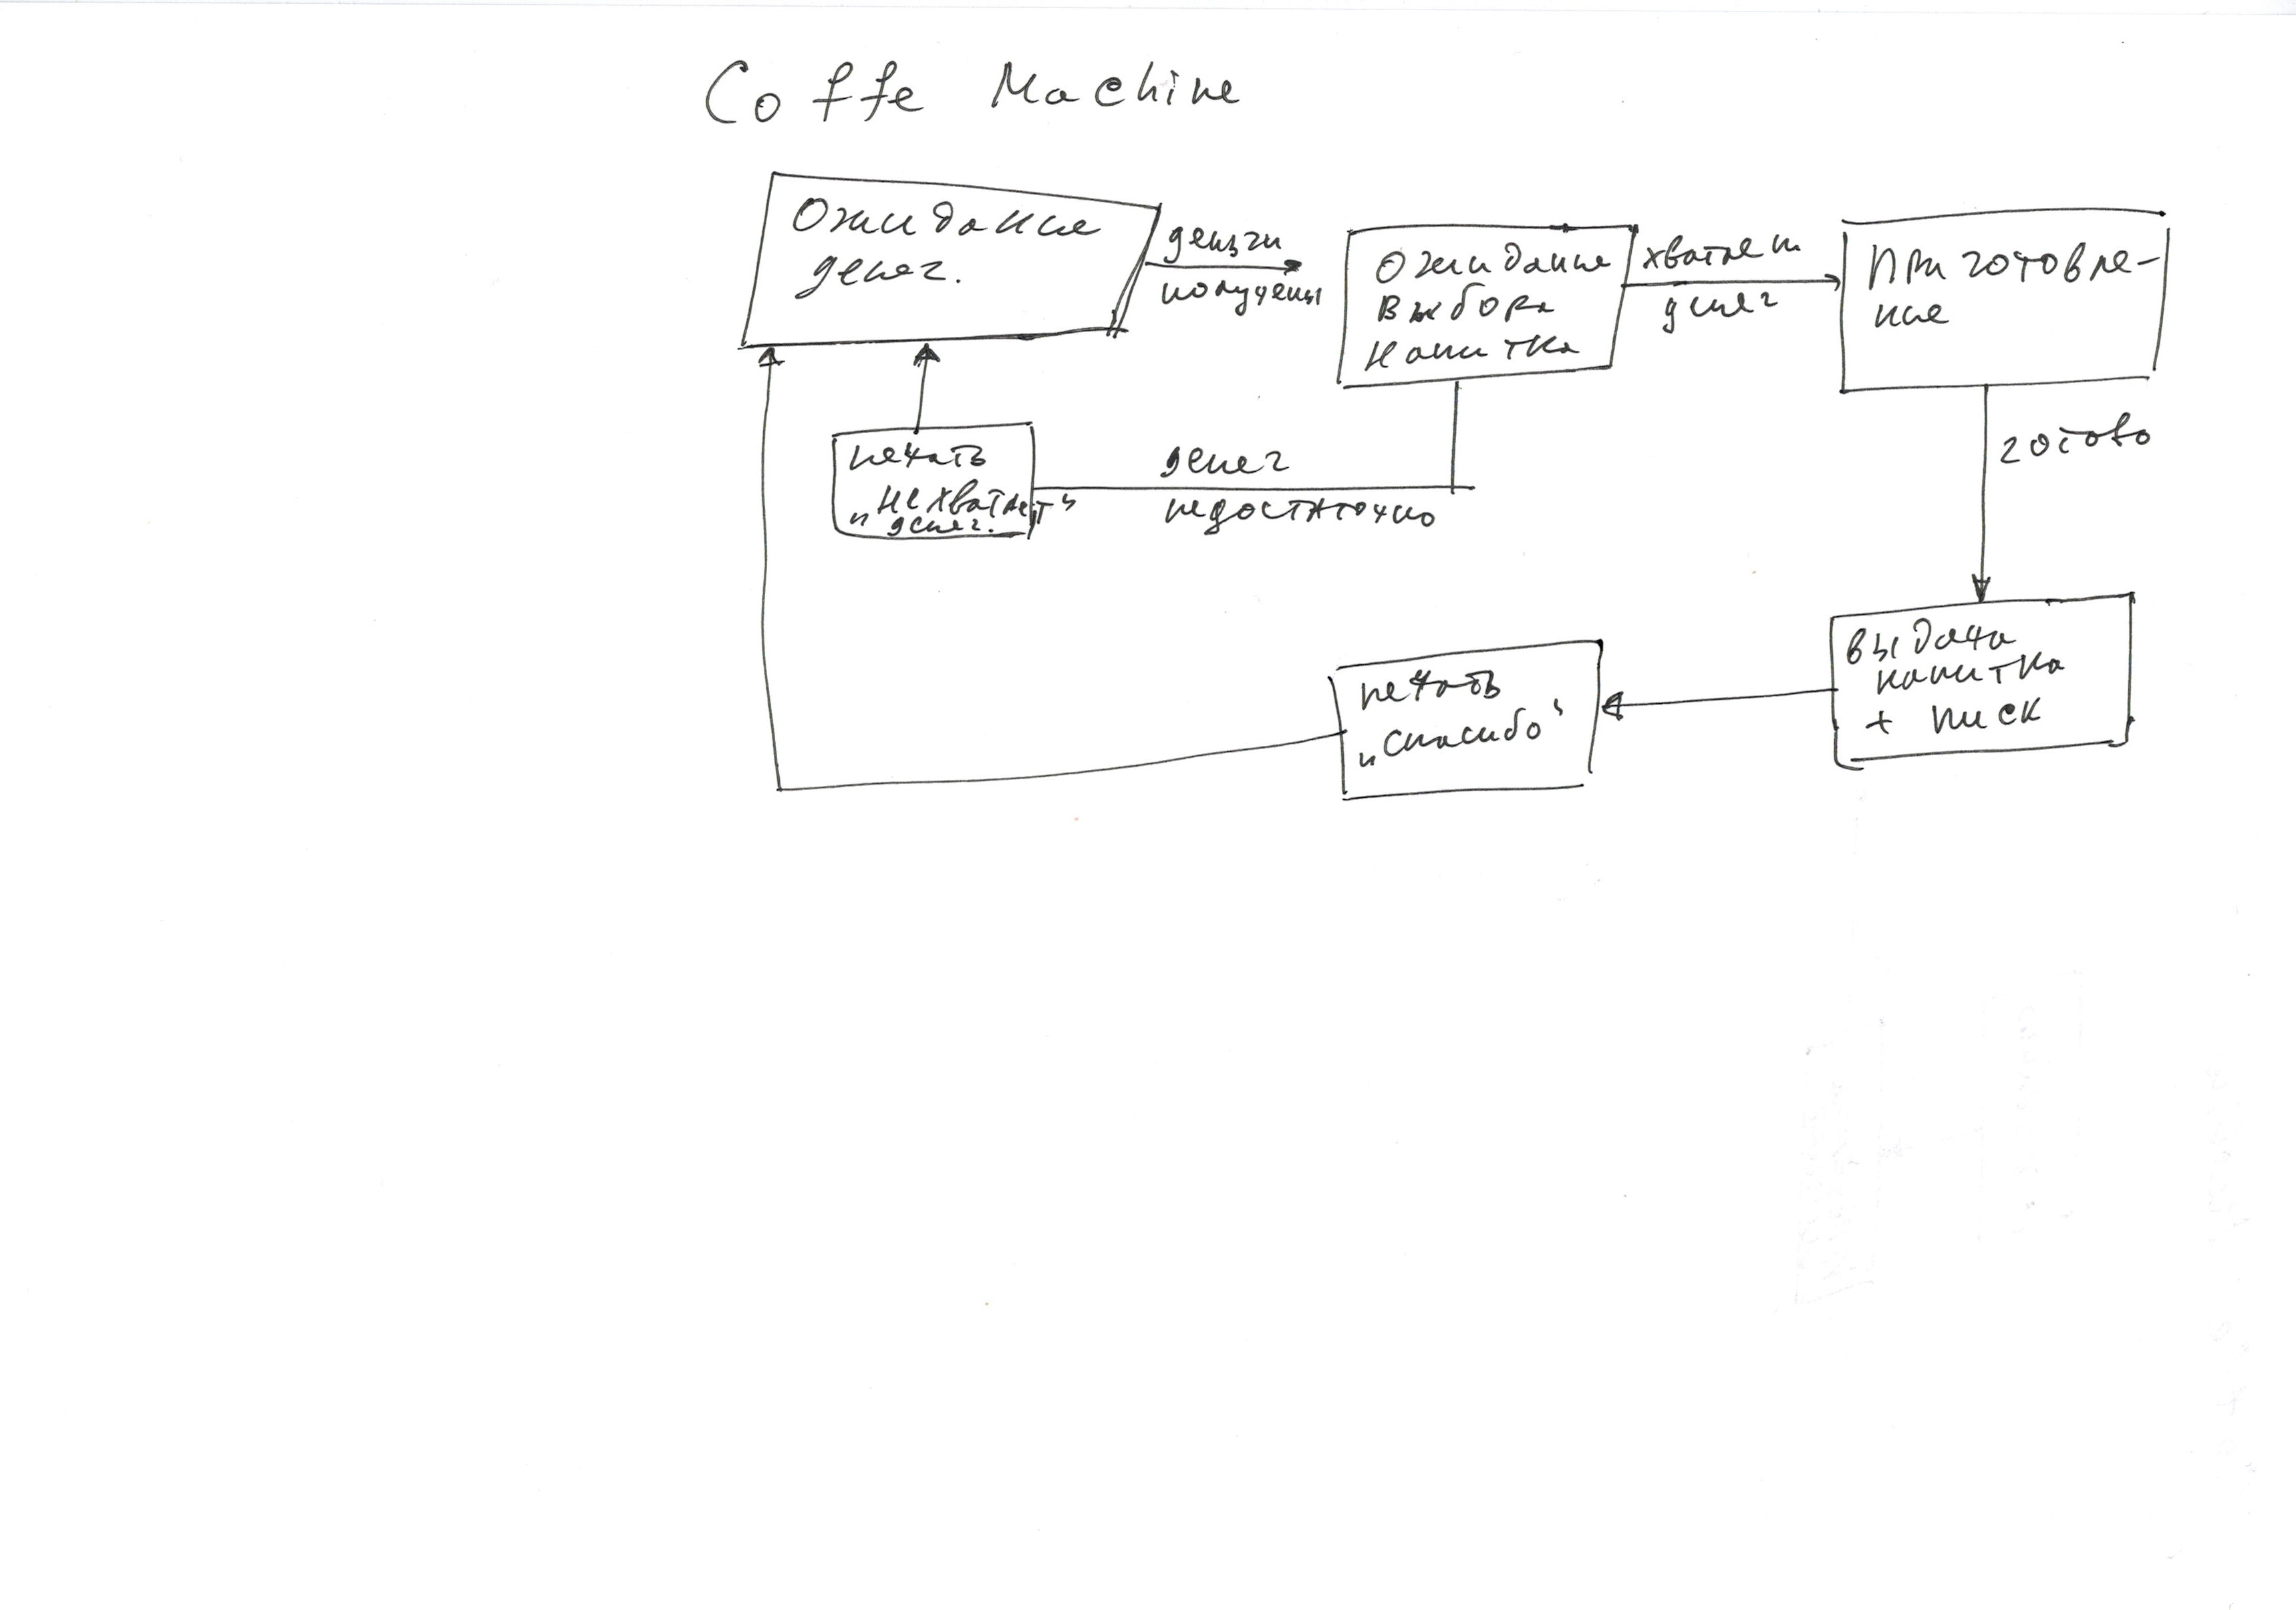 Coffe Machine
Ожидание
денег.
деньги
получены
Ожидание
выбора
напитка
хватает
денег
Приготовле-
ние
готово
печать
„не хватает“
денег.
денег
недостаточно
выдача
напитка
+ писк
печать
„спасибо“